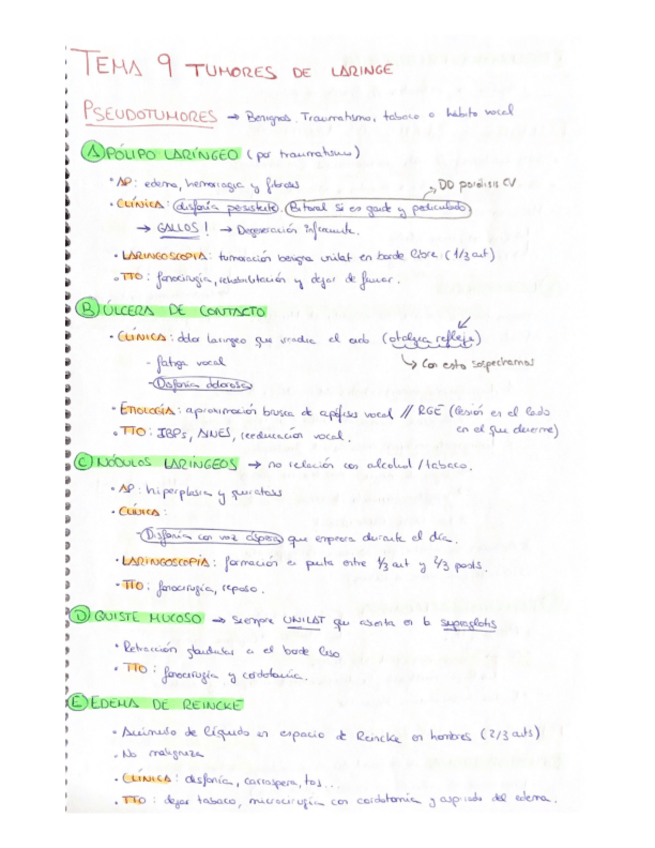 TEMA 9 TUMORES DE LARINGE
PSEUDOTUMORES → Benignos. Traumatismo, tabaco o hábito vocal
A) PÓLIPO LARÍNGEO (por traumatismo)
• AP: edema, hemorragia y fibrosis
→ DD parálisis CV
• CLÍNICA: disfonía persistente. Bitonal si es grande y pediculado
→ GALLOS! → Degeneración infrecuente.
• LARINGOSCOPIA: tumoración benigna unilat en borde libre (1/3 ant)
• TTO: fonocirugía, rehabilitación y dejar de fumar.
B) ÚLCERA DE CONTACTO
• CLÍNICA: dolor laríngeo que irradia al oído (otalgia refleja)
- fatiga vocal
↳ Con esto sospechamos
- Disfonía dolorosa
• ETIOLOGÍA: aproximación brusca de apófisis vocal // RGE (lesión en el lado
en el que duerme)
• TTO: IBPs, AINES, reeducación vocal.
C) NÓDULOS LARÍNGEOS → no relación con alcohol / tabaco.
• AP: hiperplasia y queratosis
• CLÍNICA:
- Disfonía con voz áspera que empeora durante el día.
• LARINGOSCOPÍA: formación en punta entre 1/3 ant y 2/3 posts.
• TTO: fonocirugía, reposo.
D) QUISTE MUCOSO → Siempre UNILAT que asienta en la supraglotis
• Retracción glandular en el borde
• TTO: fonocirugía y cordotomía.
E) EDEMA DE REINCKE
• Acúmulo de líquido en espacio de Reincke en hombres (2/3 ants)
• No maligniza
• CLÍNICA: disfonía, carraspera, tos...
• TTO: dejar tabaco, microcirugía con cordotomía y aspirado del edema.